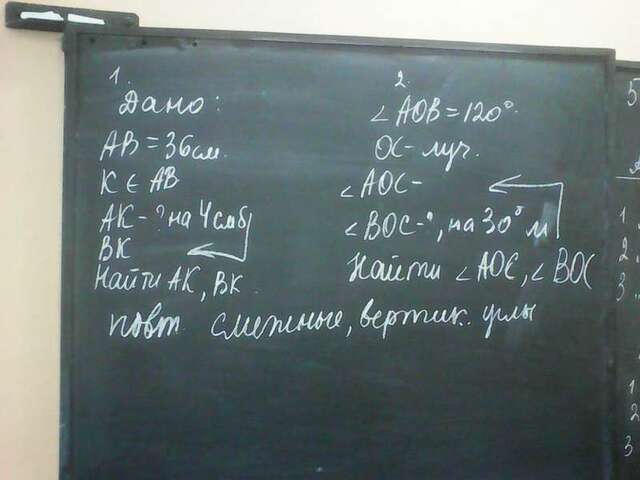 1.
Дано:
AB = 36 см.
K ∈ AB
AK - ? на 4 см б
BK
Найти AK, BK.
2.
∠AOB = 120°.
OC - луч.
∠AOC -
∠BOC - ?, на 30° м
Найти ∠AOC, ∠BOC
повт. смежные, вертик. углы
5
1.
2.
3.
1
2
3